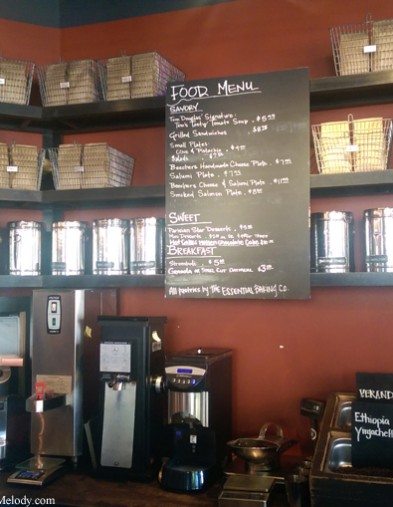 FOOD MENU
SAVORY
Tom Douglas' Signature
Tom's Tasty Tomato Soup . $5.95
Grilled Sandwiches $8.25
Small Plates
Olive & Pistachio . $4
Salads . $7.95
Beechers Handmade Cheese Plate . $7
Salumi Plate . $7.95
Beechers Cheese & Salumi Plate
Smoked Salmon Plate . $8
SWEET
Parisian Star Desserts . $5
Mini Desserts
Hot Cakes Molten Chocolate Cake
BREAKFAST
Strombolli . $5
Granola or Steel Cut Oatmeal $3
All pastries by THE ESSENTIAL BAKING CO.
VERAND
Ethiopia
Yirgacheff
Melody.com